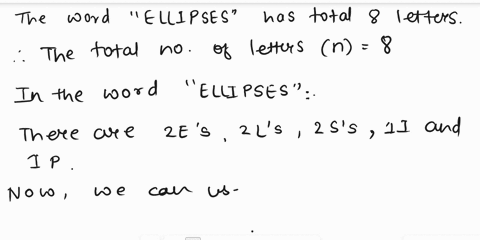 The word "ELLIPSES" has total 8 letters.
∴ The total no. of letters (n) = 8
In the word "ELLIPSES":.
There are 2E's, 2L's, 2S's, 1I and
1P.
Now, we can us